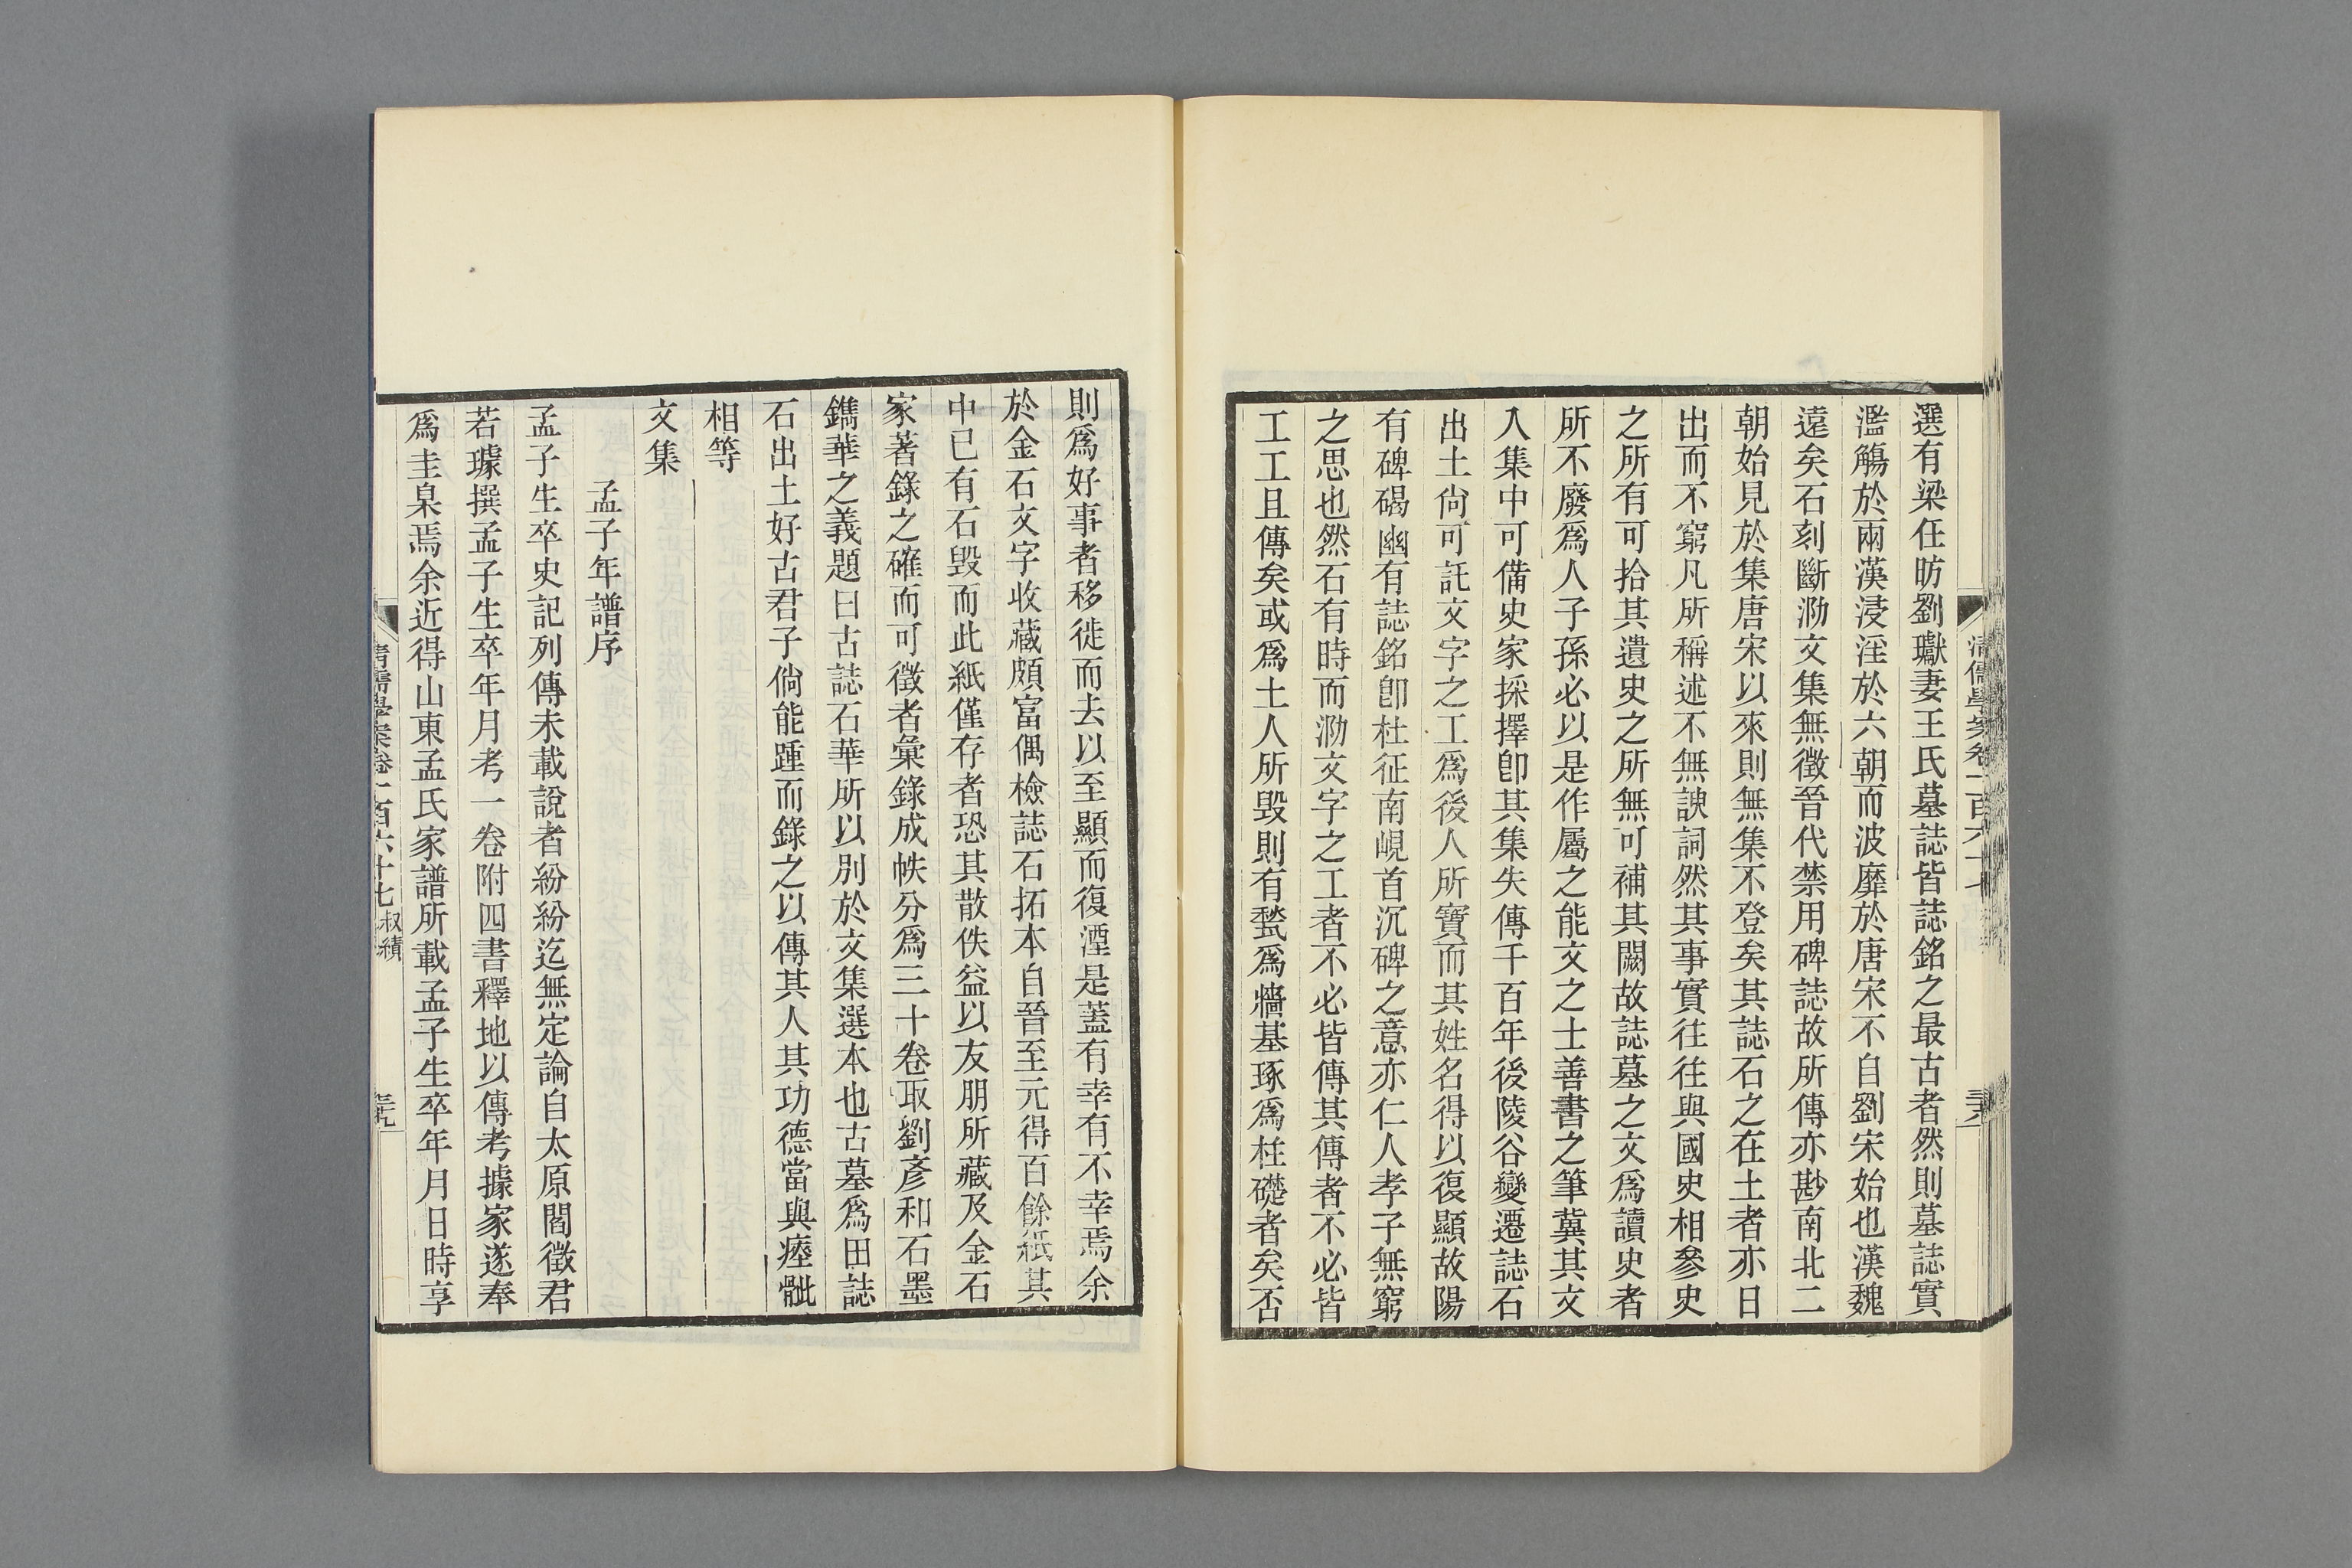 選有梁任昉劉瓛妻王氏墓誌皆誌銘之最古者然則墓誌實
濫觴於兩漢浸淫於六朝而波靡於唐宋不自劉宋始也漢魏
遠矣石刻斷泐文集無徵晉代禁用碑誌故所傳亦尠南北二
朝始見於集唐宋以來則無集不登矣其誌石之在土者亦日
出而不窮凡所稱述不無諛詞然其事實往往與國史相參史
之所有可拾其遺史之所無可補其闕故誌墓之文爲讀史者
所不廢爲人子孫必以是作屬之能文之士善書之筆冀其文
入集中可備史家採擇卽其集失傳千百年後陵谷變遷誌石
出土尙可託文字之工爲後人所寶而其姓名得以復顯故陽
有碑碣幽有誌銘卽杜征南峴首沉碑之意亦仁人孝子無窮
之思也然石有時而泐文字之工者不必皆傳其傳者不必皆
工工且傳矣或爲土人所毀則有甃爲牆基琢爲柱礎者矣否
則爲好事者移徙而去以至顯而復湮是蓋有幸有不幸焉余
於金石文字收藏頗富偶檢誌石拓本自晉至元得百餘紙其
中已有石毀而此紙僅存者恐其散佚益以友朋所藏及金石
家著錄之確而可徵者彙錄成帙分爲三十卷取劉彥和石墨
鐫華之義題曰古誌石華所以別於文集選本也古墓爲田誌
石出土好古君子倘能踵而錄之以傳其人其功德當與瘞骴
相等
文集
孟子年譜序
孟子生卒史記列傳未載說者紛紛迄無定論自太原閻徵君
若璩撰孟子生卒年月考一卷附四書釋地以傳考據家遂奉
爲圭臬焉余近得山東孟氏家譜所載孟子生卒年月日時享
清儒學案卷一百六十七 叔績
三十七